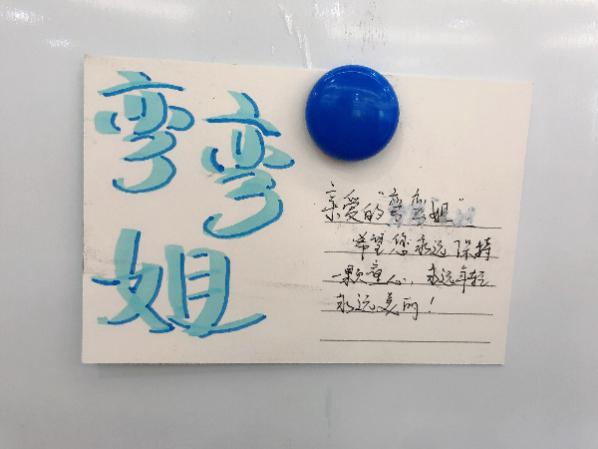 弯弯
姐
亲爱的“弯弯姐”
希望您永远保持
一颗童心，永远年轻
永远美丽！